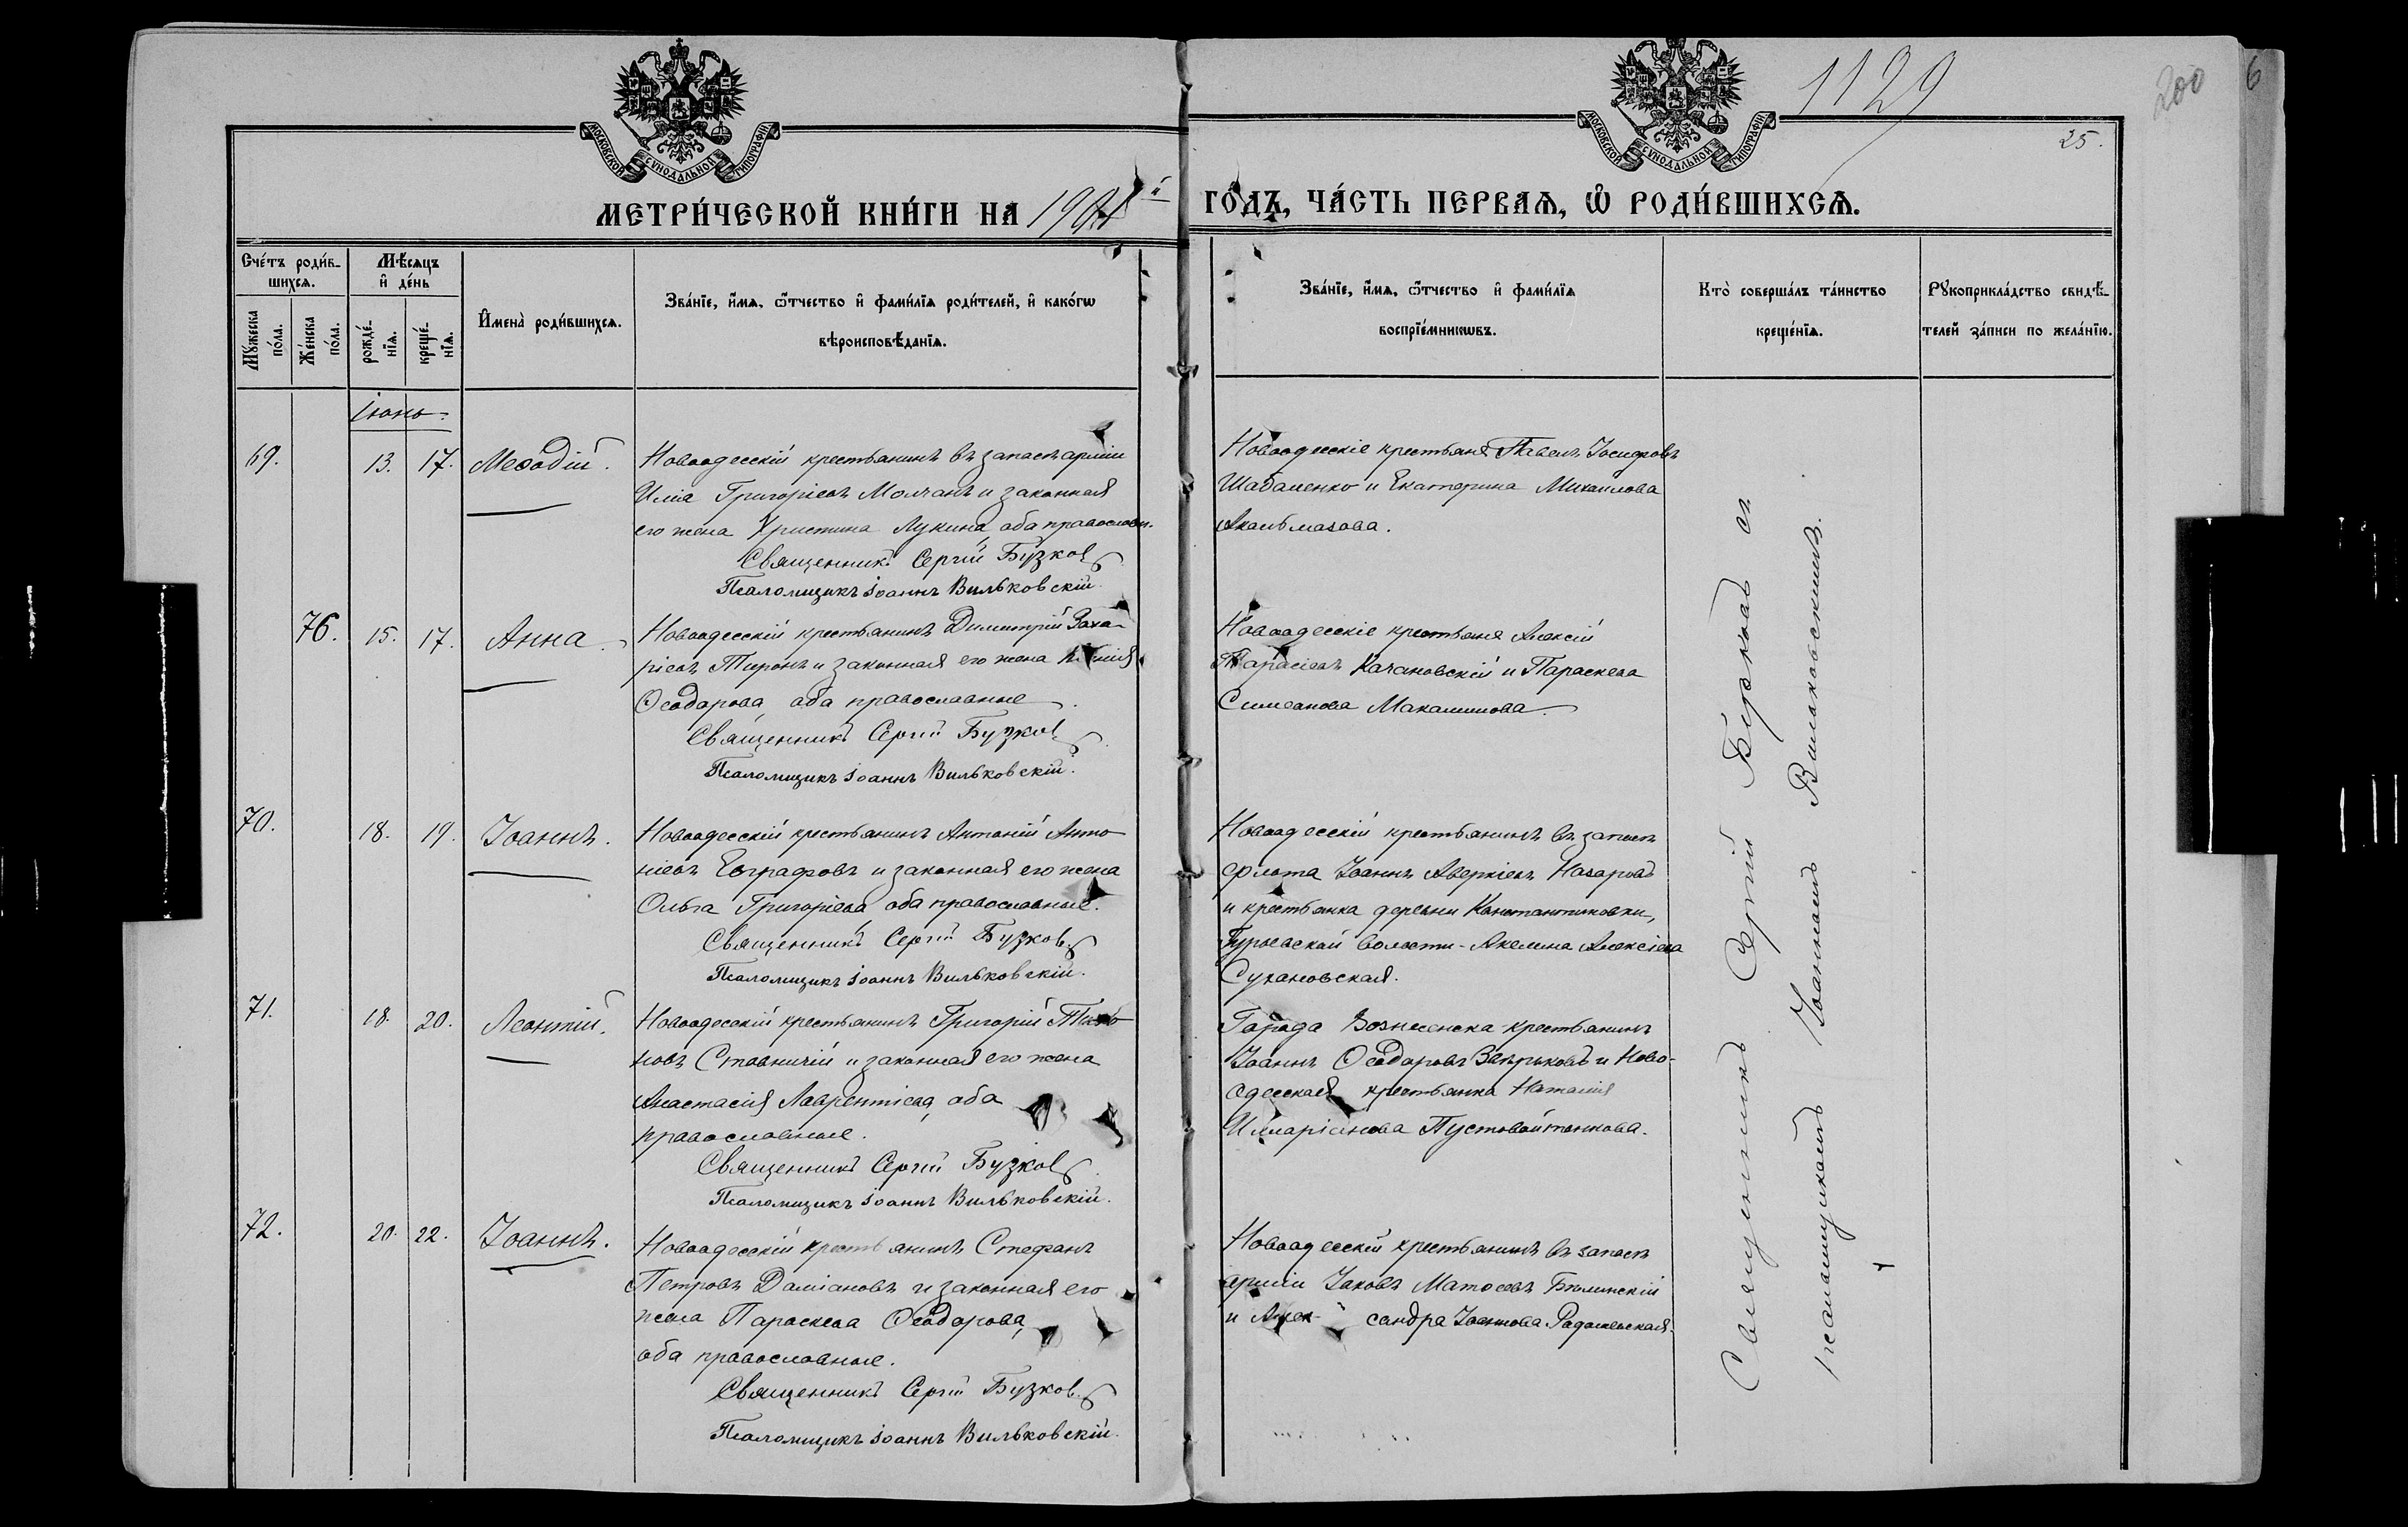 1129
200
6
25.
МОСКОВСКОЙ СѴНОДАЛЬНОЙ ТИПОГРАФІИ
МОСКОВСКОЙ СѴНОДАЛЬНОЙ ТИПОГРАФІИ
МЕТРИ́ЧЕСКОЙ КНИ́ГИ НА
ГО́ДЪ, ЧА́СТЬ ПЕРВАѦ, Ѡ РОДИ́ВШИХСѦ.
Сче́тъ роди́в-
шихсѧ.
Мꙋ́жеска по́ла.
Же́нска по́ла.
Мѣ́сѧцъ
и де́нь
рожде́-
нїѧ.
креще́-
нїѧ.
И҆мена̀ роди́вшихсѧ.
Зва́нїе, и҆́мѧ, ѻ҆́тчество и҆ фами́лїѧ роди́телей, и҆ како́гѡ
вѣроисповѣ́данїѧ.
Зва́нїе, и҆́мѧ, ѻ҆́тчество и҆ фами́лїѧ
воспрїе́мникѡвъ.
Кто̀ соверша́лъ та́инство
креще́нїѧ.
Рꙋкоприкла́дство свидѣ́-
телей за́писи по жела́нїю.
Іюнь
69.
13.
17.
Меѳодій.
Новоодесскій крестьянинъ въ запасѣ арміи
Илія Григоріевъ Молчанъ и законная
его жена Христина Лукина, оба православн.
Священникъ Сергій Бузков
Псаломщикъ Іоаннъ Вильковскій.
Новоодесскіе крестьяне Павелъ Іосифовъ
Шабаленко и Екатерина Михаилова
76.
15.
17.
Анна.
Новоодесскій крестьянинъ Димитрій Заха-
ріевъ Тиронъ и законная его жена
Ѳеодорова, оба православные.
Священникъ Сергій Бузков
Псаломщикъ Іоаннъ Вильковскій.
Новоодесскіе крестьяне Алексій
Тарасіевъ Качановскій и Параскева
Симеонова
70.
18.
19.
Іоаннъ.
Новоодесскій крестьянинъ Антоній Анто-
ніевъ Евграфовъ и законная его жена
Ольга Григоріева, оба православные.
Священникъ Сергій Бузков
Псаломщикъ Іоаннъ Вильковскій.
Новоодесскій крестьянинъ въ запасѣ
флота Іоаннъ Аверкіевъ Назаровъ
и крестьянка деревни Константиновки,
Гурьевской волости - Акелина Алексіева
Сухановская.
71.
18.
20.
Леонтій.
Новоодесскій крестьянинъ Григорій
новъ Ставничій и законная его жена
Анастасія Лаврентіева, оба
православные.
Священникъ Сергій Бузков
Псаломщикъ Іоаннъ Вильковскій.
Города Вознесенска крестьянинъ
Іоаннъ Ѳеодоровъ и Ново-
одесская крестьянка Наталія
Илларіонова Пустовойтенкова.
72.
20.
22.
Іоаннъ.
Новоодесскій крестьянинъ Стефанъ
Петровъ Даміановъ и законная его
жена Параскева Ѳеодорова,
оба православные.
Священникъ Сергій Бузков
Псаломщикъ Іоаннъ Вильковскій.
Новоодесскій крестьянинъ въ запасѣ
арміи Іаковъ Матѳеевъ Бѣлинскій
и Алек- сандра Іоаннова
Священникъ Сергій Бузковъ съ
псаломщикомъ Іоанномъ Вильковскимъ.